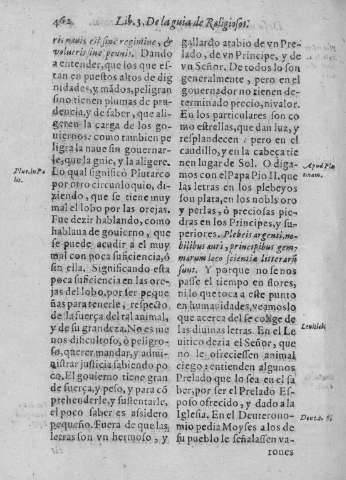 462 Lib. 3. De la guia de Religiosos.
ris nauis est sine regimine, &
volueris sine pennis. Dando
a entender, que los que estan
en puestos altos de dig
nidades, y mãdos, peligran
sino tienen plumas de pru-
dencia, y de saber, que ali-
geren la carga de los go-
uiernos: como tambien pe
ligra la naue sin gouernar-
le, que la guie, y la aligere.
Lo qual significò Plutarco
por otro circunloquio, di-
ziendo, que se tiene muy
mal el lobo por las orejas.
Fue dezir hablando, como
hablaua de gouierno, que
se puede acudir à el muy
mal con poca suficiencia, ò
sin ella. Significando esta
poca suficiencia en las ore-
jas del lobo, por ser peque
ñas para tenerle, respecto
de la fuerça del tal animal,
y de su grandeza. No es me
nos dificultoso, ò peligro-
so, querer mandar, y admi-
nistrar justicia sabiendo po
co. El gouierno tiene gran
de fuerça, y peso, y para cõ
prehenderle, y sustentarle,
el poco saber es assidero
pequeño. Fuera de que las
letras son vn hermoso, y
Plut. in Po
lit.
gallardo atabio de vn Pre-
lado, de vn Principe, y de
vn Señor. De todos lo son
generalmente, pero en el
gouernador no tienen de-
terminado precio, ni valor.
En los particulares son co
mo estrellas, que dan luz, y
resplandecen: pero en el
caudillo, y en la cabeça tie
nen lugar de Sol. O diga-
mos con el Papa Pio II. que
las letras en los plebeyos
son plata, en los nobles oro
y perlas, ò preciosas pie-
dras en los Principes, y su-
periores. Plebeis argenti, no-
bilibus auri, principibus gem-
marum loco scientiæ litterarũ
sunt. Y porque no se nos
passe el tiempo en flores,
ni lo que toca a este punto
en humanidades, veamos lo
que acerca del se colige de
las diuinas letras. En el Le
uitico dezia el Señor, que
no le ofreciessen animal
ciego: entienden algunos
Prelado que lo sea en el sa
ber, por ser el Prelado Es-
poso ofrecido, y dado a la
Iglesia. En el Deuterono-
mio pedia Moyses a los de
su pueblo le señalassen va-
rones
Apud Pla
tinam.